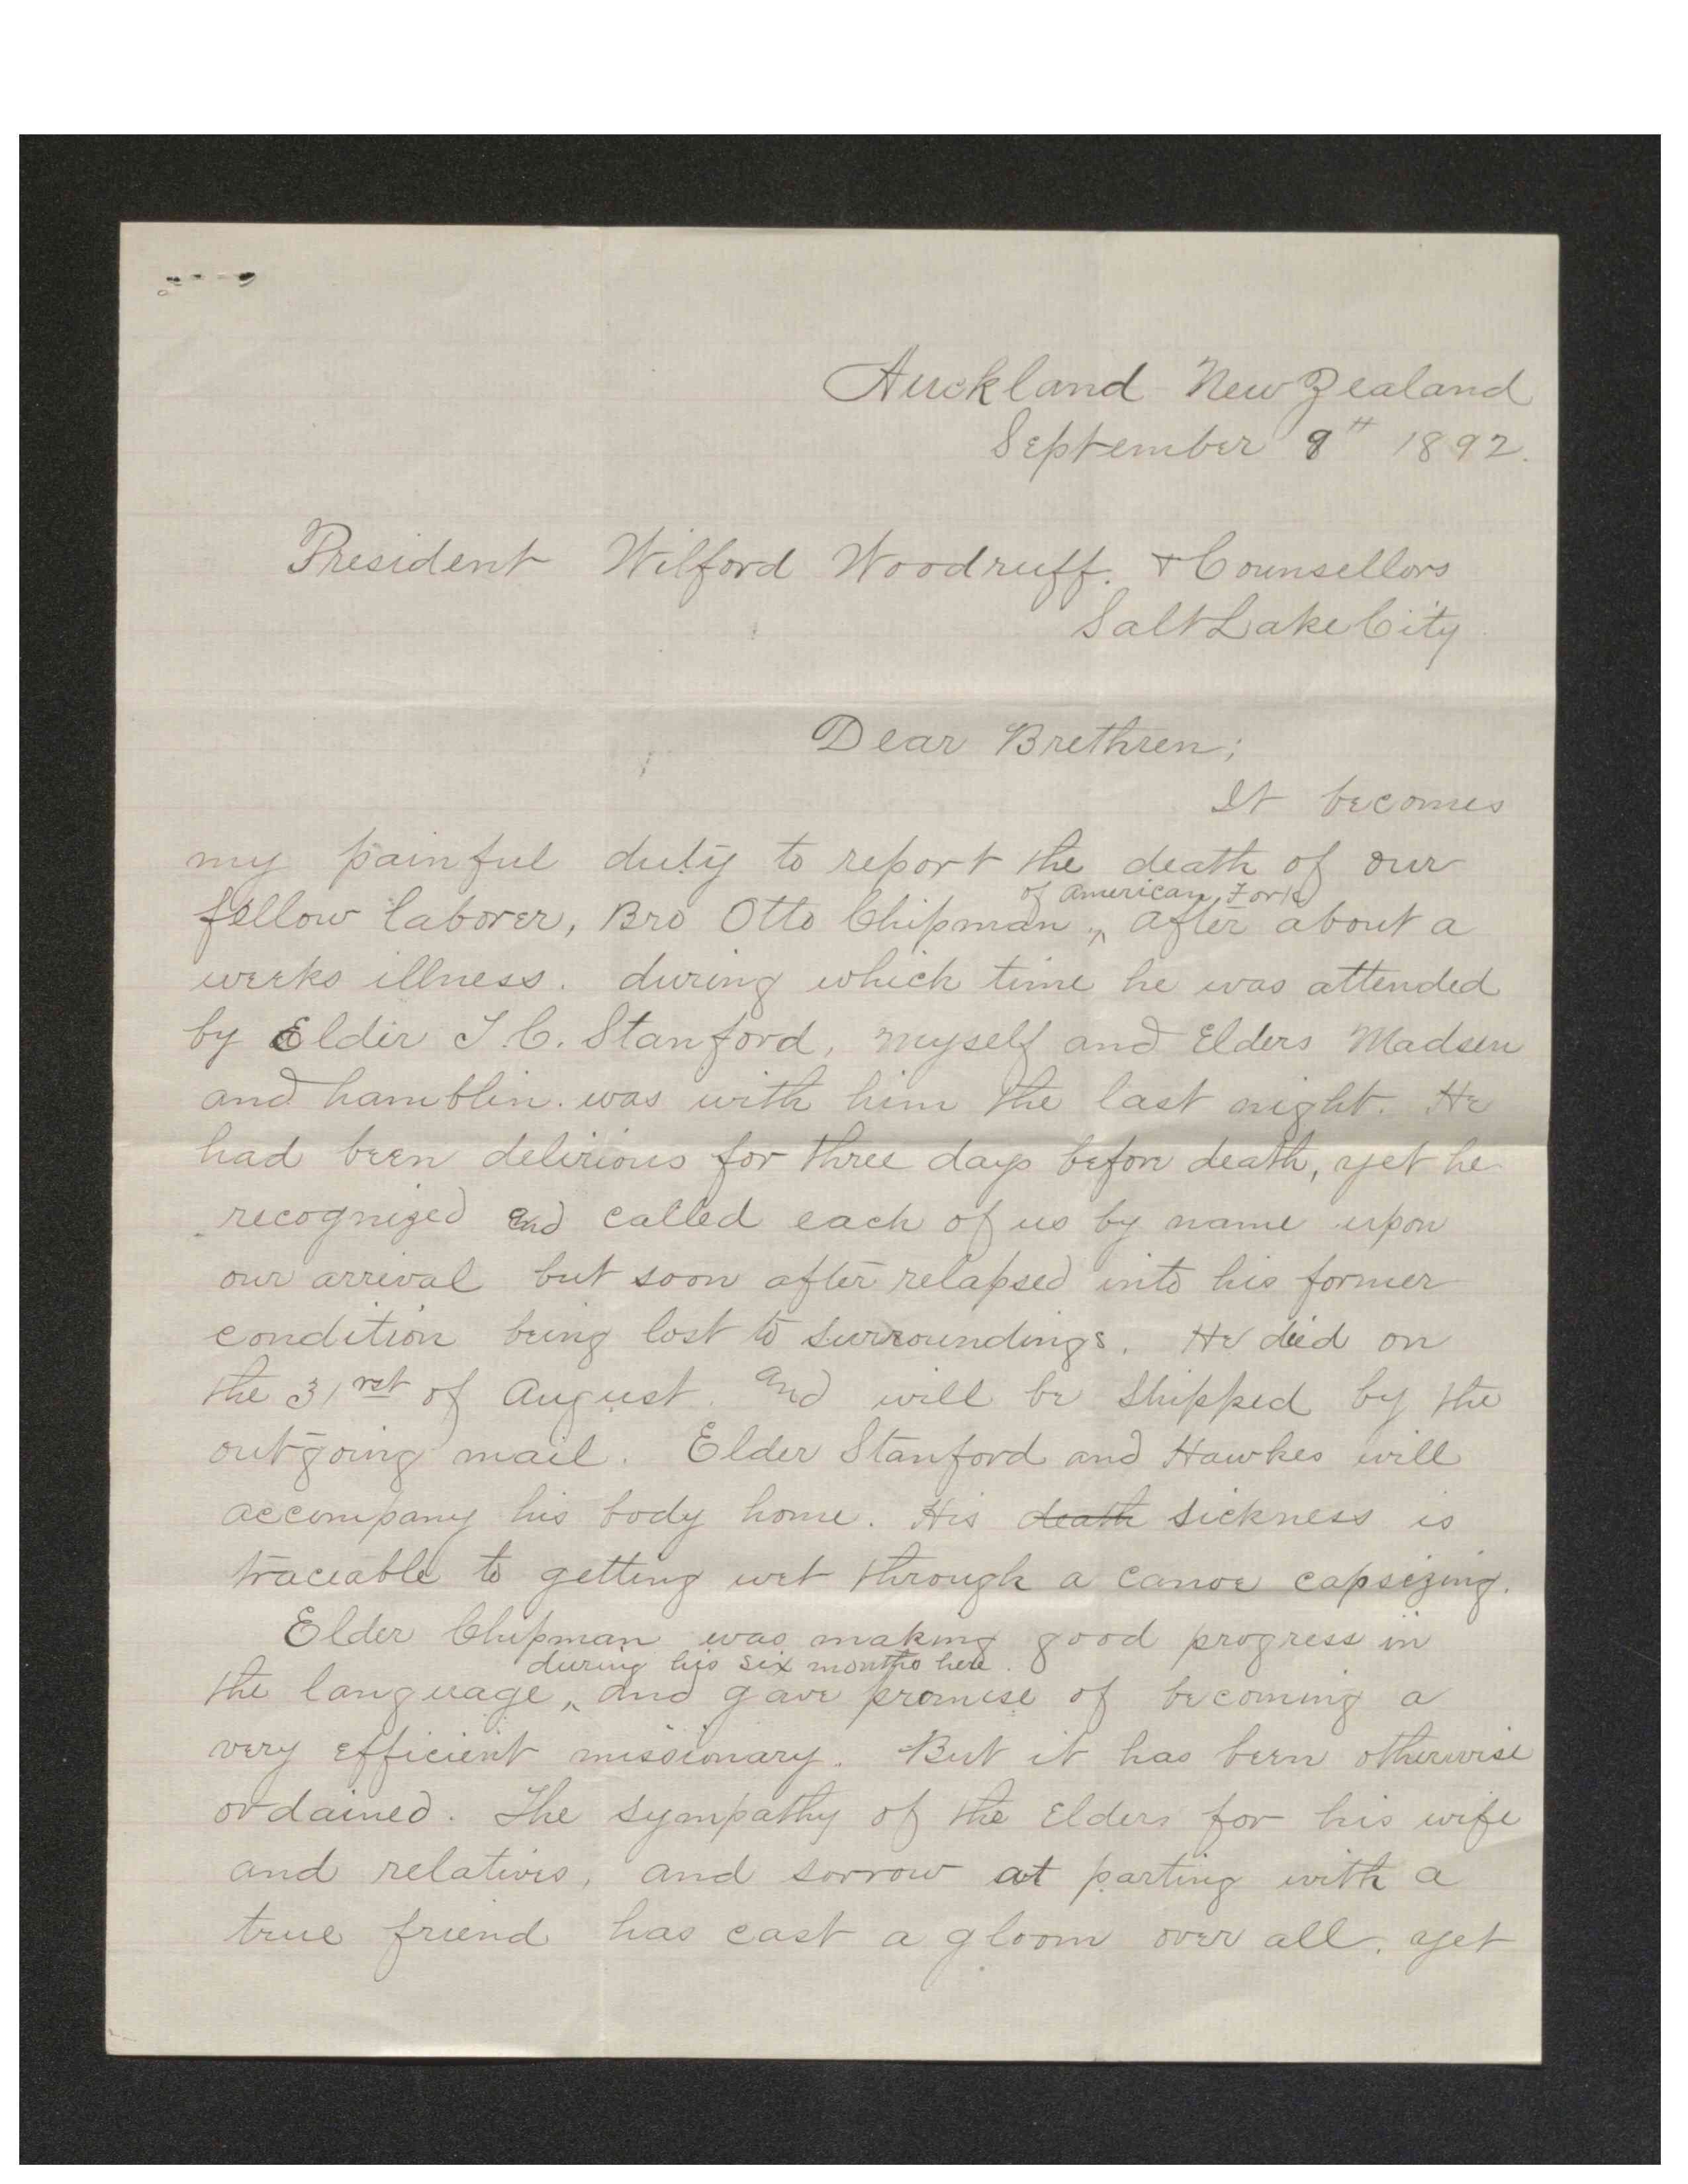 Auckland New Zealand
September 8th 1892.
President Wilford Woodruff. & Counsellors
Salt Lake City
Dear Brethren;
It becomes
my painful duty to report the death of our
of American Fork
fellow laborer, Bro Otto Chipman, ^ after about a
weeks illness. during which time he was attended
by Elder J. C. Stanford, myself and Elders Madsen
and hamblin. was with him the last night. He
had been delirious for three days before death, yet he
recognized and called each of us by name upon
our arrival but soon after relapsed into his former
condition being lost to surroundings. He died on
the 31rst of August. and will be shipped by the
outgoing mail. Elder Stanford and Hawkes will
accompany his body home. His death sickness is
traceable to getting wet through a canoe capsizing.
Elder Chipman was making good progress in
during his six months here.
the language, ^ and gave promise of becoming a
very efficient missionary. But it has been otherwise
ordained. The sympathy of the Elders for his wife
and relatives, and sorrow at parting with a
true friend has cast a gloom over all. yet